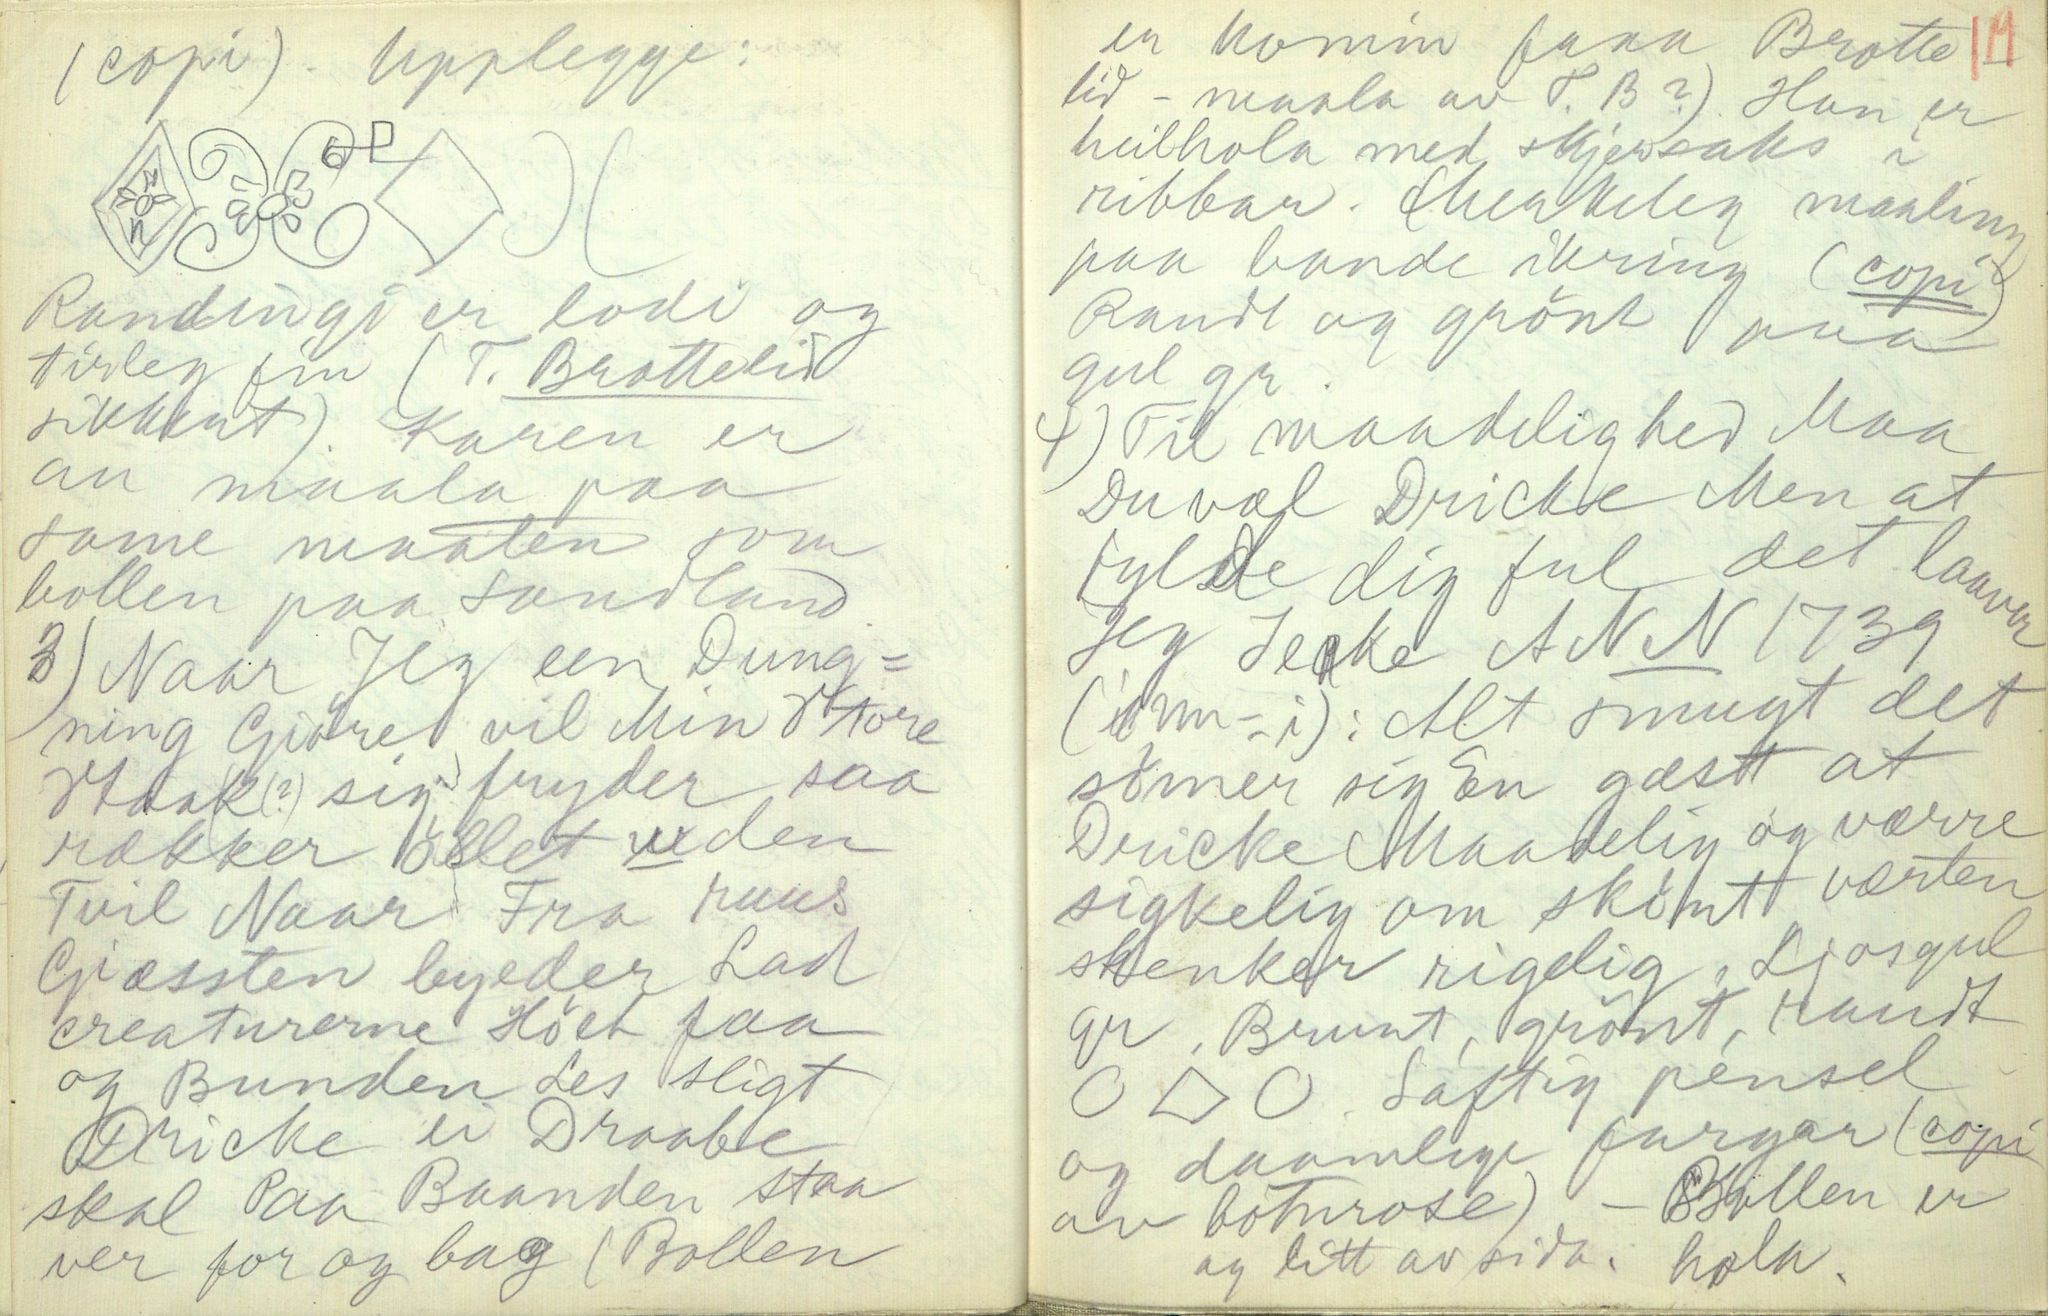 (copi). Upplegge:
Randingi er lodi og
tirleg fin (T. Brattelid
sikkert). Karen er
au maala paa
same maaten som
bollen paa Sandland.
3) Naar Jeg een Dung=
ning Giöre vil Min Store
Staak(?) sig fryder saa
rækker öllet uden
Tvil Naar Fra ruus
Giæssten byeder Lad
creaturerne Höet faa
og Bunden Les sligt
Dricke ei Draabe
skal Paa Baanden staa
ver for og bag (Bollen
er komin fraa Brotte 19
lid - maala av T. B?) Han er
heilhola med skjersaks i
ribbar. Merkeleg maaling
paa bande ikring (copi)
Raudt og grönt paa
gul gr.
4) Til maadelighed Maa
Du væl Dricke Men at
fylde dig ful det laaver
Jeg Iecke ANN 1739
(inn-i): Alt smugt det
sömer sig En gæstt at
Dricke Maadelig og værre
sigkelig om skiönt værten
skenker rigelig. Ljosgul
gr. Brunt, grönt, raudt
Saftig pensel
og daamlege fargar (copi
av botnrose) - Bollen er
og litt av sida. hola.